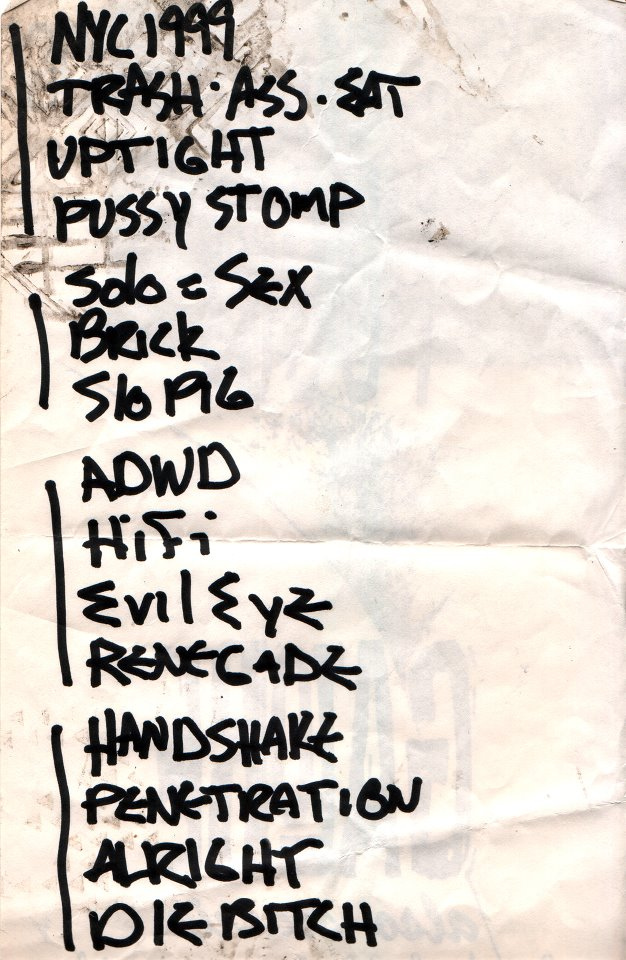 NYC 1999
TRASH · ASS · SAT
UPTIGHT
PUSSY STOMP
Solo = SEX
BRICK
Slo PIG
ADWD
HiFi
Evil EyE
RENEGADE
HANDSHAKE
PENETRATION
ALRIGHT
DIE BITCH